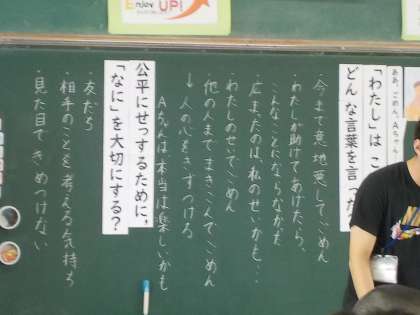 Enjoy UP!
ああ、ごめん。Aちゃん
「わたし」はこ
どんな言葉を言った
・今まで意地悪してごめん
・わたしが助けてあげたら、
こんなことにならなかった
・広まったのは、私のせいかも…
・わたしのせいでごめん
・他の人までまきこんでごめん
↓人の心をきずつける
Aちゃんは本当は楽しいかも
公平にせっするために、
「なに」を大切にする？
・友だち
・相手のことを考える気持ち
・見た目できめつけない